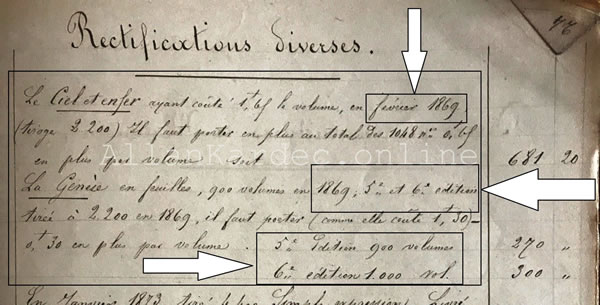 Rectifications diverses.
Le Ciel et enfer ayant coûté 1f,65 le volume, en février 1869
(tirage 2.200) Il faut porter en plus au total des 1048 nos 0f,65
en plus par volume soit 681 20
AllanKardec.online
La Genèse en feuilles, 900 volumes en 1869, 5e et 6e edition
tirée à 2.200 en 1869, il faut porter (comme elle coûte 1f,30)-
0f,30 en plus par volume. 5e Edition 900 volumes 270 "
6e edition 1.000 vol. 300 "
En Janvier 1873 tiré Simple expression